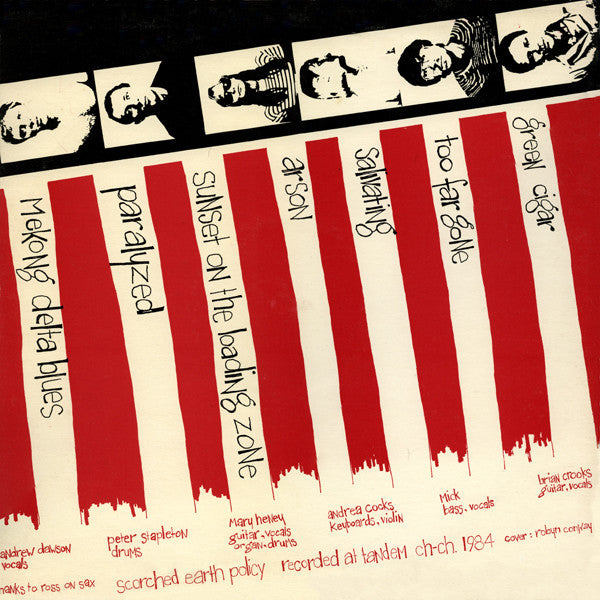 mekong delta blues
paralyzed
sunset on the loading zone
arson
salivating
too far gone
green cigar
andrew dawson
vocals
peter stapleton
drums
Mary heney
guitar, vocals
organ, drums
andrea cocks
keyboards, violin
mick
bass, vocals
brian crooks
guitar, vocals
thanks to ross on sax
scorched earth policy recorded at tandem ch-ch. 1984 cover: robyn conway